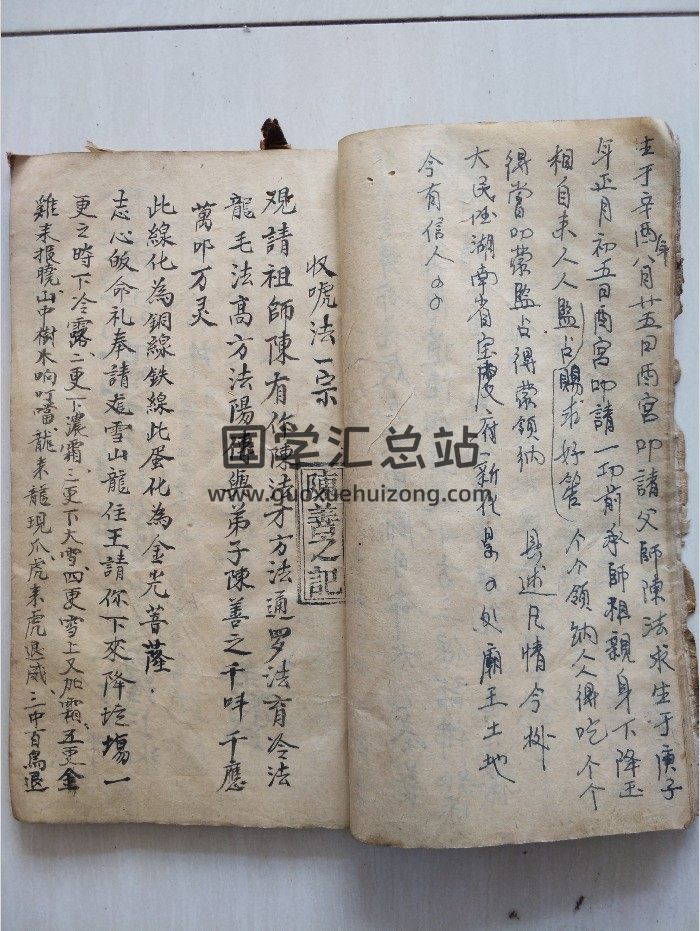 生于辛酉年八月廿五日酉宫叩請父師陳法求生于庚子
年正月初五日酉宫叩請一切前承師祖親身下降玉
相自来人人監占賜求好筶个个領納人人得吃个个
得嘗叩蒙監占得蒙領納 具述凡情今
大民国湖南省宝慶府新化县々处廟王土地
今有信人々々
收唬法一宗
陳善之記
观請祖師陳有陳法才方法通罗法育冷法
龍毛法髙方法陽與弟子陳善之千叫千應
萬叩万灵
此線化為銅線鉄線此蛋化為金光菩薩
志心皈命礼奉請雪山龍住王請你下來降垃塲一
更之時下冷露二更下濃霜三更下大雪四更雪上又加霜五更金
雞来报曉山中樹木响叮噹龍来龍現爪虎来虎退威三中百鸟退
国学汇总站
www.guoxuehuizong.com